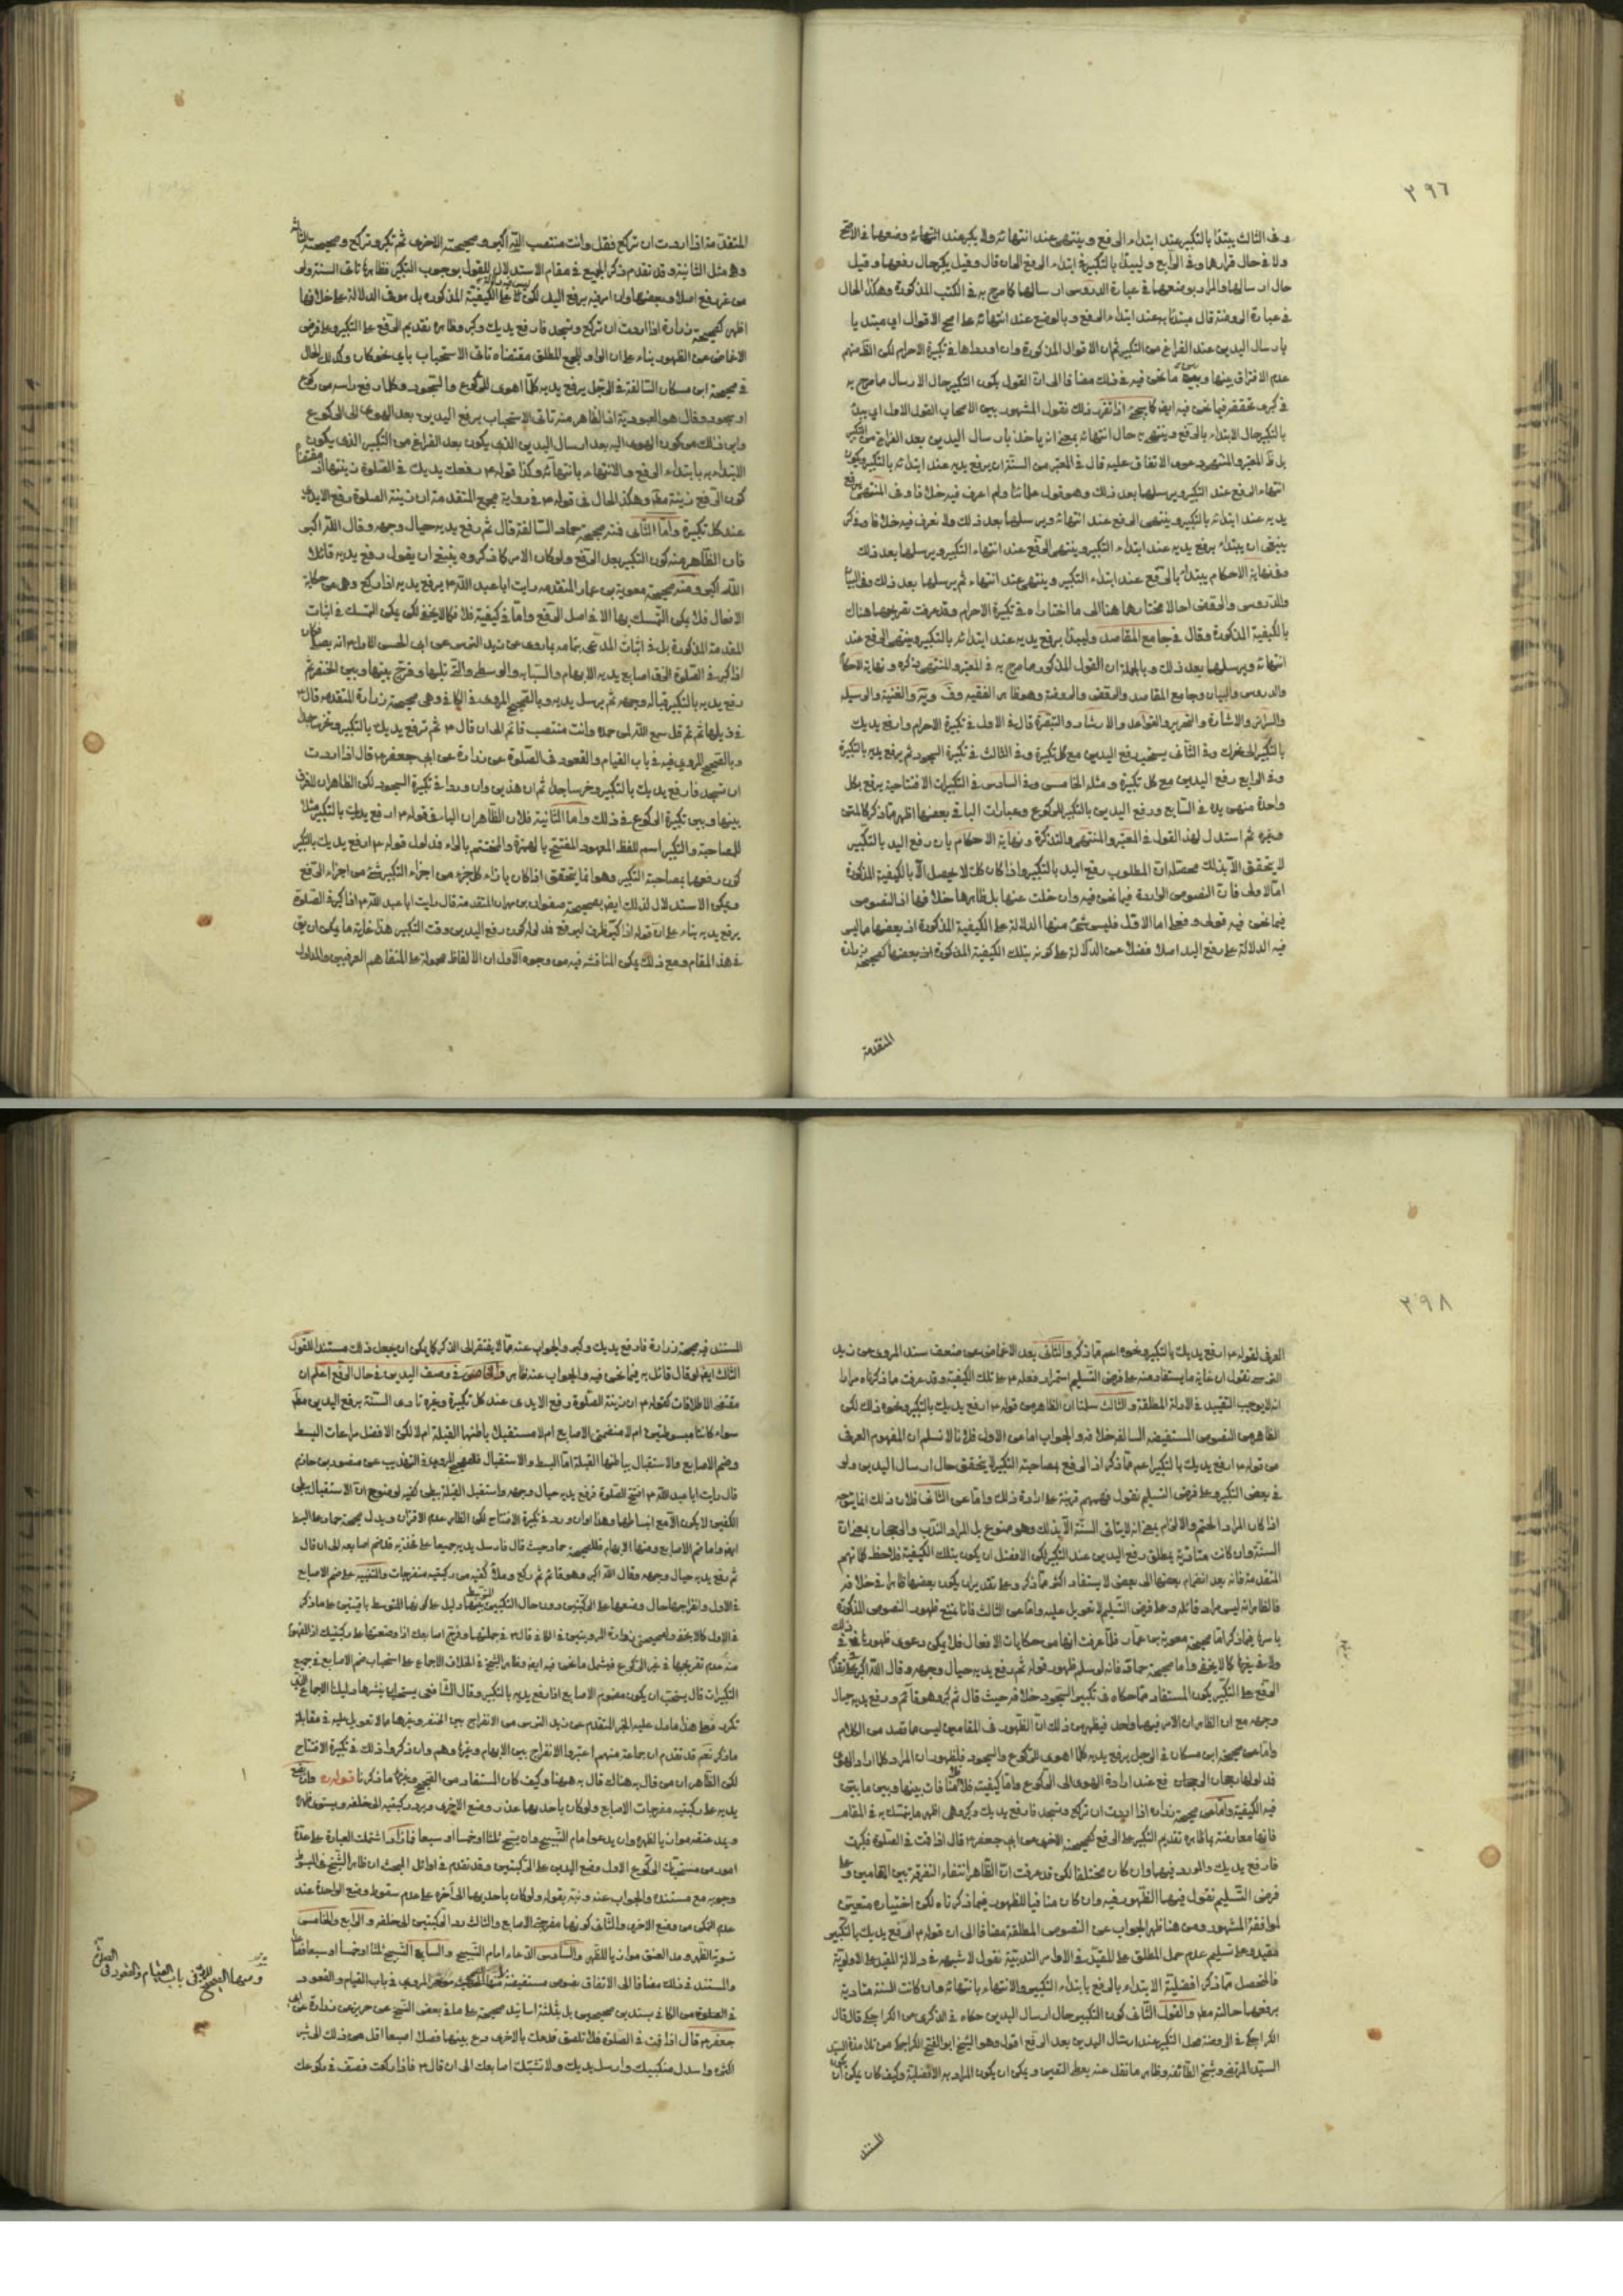 ٢٩٦
وفى الثالث يبتدأ بالتكبير عند ابتداء الرفع و ينتهى عند انتهائه ولا يكبر عند انتهائه وضعها فى الاصح
ولا فى حال قرارها وفى الرابع و ليبتدأ بالتكبير فى ابتداء الرفع الى ان قال وقيل يكبر حال رفعها وقيل
حال ارسالها والمراد بوضعها فى عبارة الدروس ارسالها كما صرح به فى الكتب المذكورة وهكذا الحال
فى عبارة الروضة قال مبتدئا به عند ابتداء الرفع و بالوضع عند انتهائه على اصح الاقوال اى مبتديا
بارسال اليدين عند الفراغ من التكبير ثم ان الاقوال المذكورة وان اوردها فى تكبيرة الاحرام لكن الظ منهم
عدم الافتراق بينها وبين ما نحن فيه فى ذلك مضافا الى ان القول بكون التكبير حال الارسال ما صرح به
فى كبرى تحققه فيما نحن فيه ايضا كما سيجئ اذا تقرر ذلك نقول المشهور بين الاصحاب القول الاول اى يبتدأ
بالتكبير حال الابتداء بالرفع و ينتهى حال انتهائه بمعنى انه ياخذ بارسال اليدين بعد الفراغ من التكبير
بل ظ المعتبر والمنتهى دعوى الاتفاق عليه قال فى المعتبر من السنة ان يرفع يديه عند ابتدائه بالتكبير ويكون
انتهاء الرفع عند التكبير ويرسلها بعد ذلك وهو قول علمائنا ولم اعرف فيه خلافا وفى المنتهى يرفع
يديه عند ابتدائه بالتكبير وينتهى الرفع عند انتهائه ويرسلها بعد ذلك ولا نعرف فيه خلافا وذكر
ينبغى ان يبتدأ برفع يديه عند ابتداء التكبير وينتهى الرفع عند انتهاء التكبير ويرسلها بعد ذلك
وفى نهاية الاحكام يبتدأ بالرفع عند ابتداء التكبير وينتهى عند انتهاء ثم يرسلها بعد ذلك وفى البيان
والدروس والجعفى احالا مختارها هنا الى ما اختاراه فى تكبيرة الاحرام وقد عرفت تصريحها هناك
بالكيفية المذكورة وقال فى جامع المقاصد وليبتدأ برفع يديه عند ابتدائه بالتكبير وينتهى الرفع عند
انتهائه ويرسلها بعد ذلك و بالجملة ان القول المذكور ما صرح به فى المعتبر والمنتهى وذكره ونهاية الاحكام
والدروس والبيان وجامع المقاصد والروضة وهو ظاهر الفقيه
والاشارة والتحرير والقواعد والارشاد والتبصرة قال فى الاول فى تكبيرة الاحرام وارفع يديك
بالتكبير الى نحرك وفى الثانى يستحب رفع اليدين مع كل تكبيرة وفى الثالث فى تكبيرة السجود ثم يرفع يديه بالتكبيرة
وفى الرابع رفع اليدين مع كل تكبيرة و مثله الخامس وفى السادس فى التكبيرات الافتتاحية يرفع بكل
واحدة منهن يديه فى السابع ورفع اليدين بالتكبير للركوع وعبارات الباقى بعضها اظهر مما ذكر كالمتن
وغيره ثم استدل لهذا القول فى المعتبر والمنتهى والتذكرة و نهاية الاحكام بان رفع اليد بالتكبير
لا يتحقق الا بذلك محصله ان المطلوب رفع اليد بالتكبير واذا كان كذلك لا يحصل الا بالكيفية المذكورة
اما الاولى فان النصوص الواردة فيما نحن فيه وان خلت عنها بل ظاهرها خلافها اذ النصوص
فيما نحن فيه قولى وفعلى اما الاول فليس شئ منها الدلالة على الكيفية المذكورة اذ بعضها ما ليس
فيه الدلالة على رفع اليد اصلا فضلا عن الدلالة على كونه بتلك الكيفية المذكورة اذ بعضها كصحيحة زرارة
المتقدمة
المتقدمة اذا اردت ان تركع فقل وانت منتصب الله اكبر وصحيحته الاخرى ثم تكبر وتركع وصحيحته الثالثة
وهى مثل الثانية وقد تقدم ذكر الجميع فى مقام الاستدلال للقول بوجوب التكبير
اظهر كصحيحة زرارة اذا اردت ان تركع وتسجد فارفع يديك وكبر وظاهره تقديم الرفع على التكبير وعلى فرض
الاغماض عن الظهور بناء على ان الواو للجمع المطلق مقتضاه تاتى الاستحباب باى نحو كان وكذلك الحال
فى صحيحة ابن مسكان السالفة فى الرجل يرفع يديه كلما اهوى للركوع والسجود وكلما رفع راسه من ركوع
او سجود وقال هو العبودية اذ الظاهر منه تاتى الاستحباب برفع اليدين بعد الهوى الى الركوع
واين ذلك من كون الهوى اليه بعد ارسال اليدين الذى يكون بعد الفراغ من التكبير الذى يكون
الابتداء به بابتداء الرفع والانتهاء بانتهائه وكذا قوله ع رفعك يديك فى الصلوة زينتها اذ مقتضاه
كون الرفع زينة مط وهكذا الحال فى قوله ع فى رواية المتقدمة ان زينة الصلوة رفع الايدى
عند كل تكبيرة واما الثانى فمنه صحيحة حماد السالفة قال ثم رفع يديه حيال وجهه وقال الله اكبر
فان الظاهر منه كون التكبير بعد الرفع ولو كان الامر كما ذكروه ينبغى ان يقول رفع يديه قائلا
الله اكبر ومنه صحيحة معوية بن عمار المتقدمة رايت ابا عبد الله ع يرفع يديه اذا ركع وهى من حكاية
الافعال فلا يمكن التمسك بها الا فى اصل الرفع واما فى كيفيته فلا كما لا يخفى لكن يمكن التمسك فى اثبات
المقدمة المذكورة بل فى اثبات المدعى بتمامه بما روى عن زيد النرسى عن ابى الحسن الاول ع انه
اذا كبر فى الصلوة الزق اصابع يديه الابهام والسبابة والوسطى والتى تليها وفرج بينها وبين الخنصر ثم
رفع يديه بالتكبير قبالة وجهه ثم يرسل يديه وبالصحيح المروى فى الكافى وهى صحيحة زرارة المتقدمة قال ع
فى ذيلها ثم قل سمع الله لمن حمده وانت منتصب قائم الى ان قال ع ثم ترفع يديك بالتكبير وتخر ساجدا
وبالصحيح المروى فيه فى باب القيام والقعود فى الصلوة عن زرارة عن ابى جعفر ع قال اذا اردت
ان تسجد فارفع يديك بالتكبير وخر ساجدا ثم ان هذين وان وردا فى تكبيرة السجود لكن الظاهر ان لا فرق
بينها وبين تكبيرة الركوع فى ذلك واما الثانية فلان الظاهر ان الباء فى قوله ع ارفع يديك بالتكبير مثلا
للمصاحبة والتكبير اسم للفظ المعهود المفتتح بالهمزة والمختتم بالراء فمدلول قوله ع ارفع يديك بالتكبير
كون رفعها بمصاحبة التكبير وهو انما يتحقق اذا كان بازاء كل جزء من اجزاء التكبير شئ من اجزاء الرفع
ويمكن الاستدلال لذلك ايضا بصحيحة صفوان بن مهران المتقدمة قال رايت ابا عبد الله ع اذا كبر فى الصلوة
يرفع يديه بناء على ان قوله اذا كبر ظرف ليرفع فمدلوله كون رفع اليدين وقت التكبير هذا غاية ما يمكن ان يق
فى هذا المقام ومع ذلك يمكن المناقشة فيه من وجوه الاول ان الالفاظ محمولة على المتفاهم العرفى والمدلول
٢٩٨
العرفى لقوله ع ارفع يديك بالتكبير ونحوه اعم مما ذكر والثانى بعد الاغماض عن ضعف سند المروى عن زيد
النرسى نقول ان غاية ما يستفاد منه على فرض التسليم استمرار فعله ع على تلك الكيفية وقد عرفت ما ذكرناه مرارا
انه لا يوجب التقييد فى الادلة المطلقة والثالث سلمنا ان الظاهر من قوله ع ارفع يديك بالتكبير ونحوه ذلك لكن
الظاهر من النصوص المستفيضة السالفة خلافه والجواب اما عن الاول فلانا لا نسلم ان المفهوم العرفى
من قوله ع ارفع يديك بالتكبير اعم مما ذكر اذ الرفع بمصاحبة التكبير لا يتحقق حال ارسال اليدين ولو
فى بعض التكبير وعلى فرض التسليم نقول فهمهم قرينة على ارادة ذلك واما عن الثانى فلان ذلك انما يتوجه
اذا كان المراد الحتم والالزام بمعنى انه لا يتاتى السنة الا بذلك وهو ممنوع بل المراد الندب والرجحان بمعنى ان
السنة وان كانت متادية بمطلق رفع اليدين عند التكبير لكن الافضل ان يكون بتلك الكيفية فلاحظ كلماتهم
المتقدمة فانه بعد انضمام بعضها الى بعض لا يستفاد اكثر مما ذكر وعلى تقدير ان يكون بعضها ظاهرا فى خلافه
فالظاهر انه ليس مراد قائله وعلى فرض التسليم لا تعويل عليه واما عن الثالث فانا نمنع ظهور النصوص المذكورة
باسرها فيما ذكر اما صحيحة معوية بن عمار فلما عرفت انها من حكايات الافعال فلا يمكن دعوى ظهورها فى ذلك
ولا فى غيرها كما لا يخفى واما صحيحة حماد فانه لو سلم ظهور قوله ثم رفع يديه حيال وجهه وقال الله اكبر فى تقديم
الرفع على التكبير يكون المستفاد مما حكاه فى تكبير السجود خلافه حيث قال ثم كبر وهو قائم ورفع يديه حيال
وجهه مع ان الظاهر ان الامر فيهما واحد فيظهر من ذلك ان الظهور فى المقامين ليس ما قصد من الكلام
واما عن صحيحة ابن مسكان فى الرجل يرفع يديه كلما اهوى للركوع والسجود فلظهور ان المراد كلما اراد الهوى
فمدلولها رجحان الرفع عند ارادة الهوى الى الركوع واما كيفيته فلا منافات بينها وبين ما يبين
فيه الكيفية واما عن صحيحة زرارة اذا اردت ان تركع وتسجد فارفع يديك وكبر وهى اظهر ما يتمسك به فى المقام
فانها معارضة بما ظاهره تقديم التكبير على الرفع كصحيحته الاخرى عن ابى جعفر ع قال اذا قمت فى الصلوة فكبرت
فارفع يديك والمورد فيهما وان كان مختلفا لكن قد عرفت ان الظاهر انتفاء التفرقة بين المقامين وعلى
فرض التسليم نقول فيهما الظهور فيه وان كان منافيا للظهور فيما ذكرناه لكن اختياره متعين
لموافقة المشهور ومن هنا ظهر الجواب عن النصوص المطلقة مضافا الى ان قوله ع ارفع يديك بالتكبير
مقيد وعلى تسليم عدم حمل المطلق على المقيد فى الاوامر الندبية نقول لا شبهة فى دلالة المقيد على الاولوية
فالمحصل مما ذكر افضلية الابتداء بالرفع بابتداء التكبير والانتهاء بانتهائه وان كانت السنة متادية
برفعهما حالته مط والقول الثانى كون التكبير حال ارسال اليدين حكاه فى الذكرى عن الكراجكى قال قال
الكراجكى فى الروضة محل التكبير عند ارسال اليدين بعد الرفع اقول وهو الشيخ ابو الفتح الكراجكى من تلامذة السيد
السيد المرتضى وشيخ الطائفة وظاهر ما نقل عنه يعطى التعيين ويمكن ان يكون المراد به الافضلية وكيف كان يمكن ان يكون
المستند
المستند فيه صحيحة زرارة فارفع يديك وكبر والجواب عنه مما لا يفتقر الى الذكر كما يمكن ان يجعل ذلك مستندا للقول
الثالث ايضا لو قال قائل به فيما نحن فيه والجواب عنه ظاهر والخامس فى وصف اليدين فى حال الرفع اعلم ان
مقتضى الاطلاقات كقوله ع ان زينة الصلوة رفع الايدى عند كل تكبيرة وغيره تادى السنة برفع اليدين مط
سواء كانتا مبسوطتين ام لا منضمتى الاصابع ام لا مستقبلا باطنها القبلة ام لا لكن الافضل مراعات البسط
وضم الاصابع والاستقبال بباطنها القبلة اما البسط والاستقبال فللصحيح المروى فى التهذيب عن منصور بن حازم
قال رايت ابا عبد الله ع افتتح الصلوة فرفع يديه حيال وجهه واستقبل القبلة ببطن كفيه لوضوح ان الاستقبال ببطن
الكفين لا يكون الا مع انبساطها وهذا وان ورد فى تكبيرة الافتتاح لكن الظاهر عدم الافتراق ويدل صحيحة حماد على البسط
ايضا واما ضم الاصابع ومنها الابهام فلصحيحة حماد حيث قال فارسل يديه جميعا على فخذيه قد ضم اصابعه الى ان قال
ثم رفع يديه حيال وجهه وقال الله اكبر وهو قائم ثم ركع وملأ كفيه من ركبتيه منفرجات والتنبيه على ضم الاصابع
فى الاول وانفراجها حال وضعها على الركبتين دون حال التكبير المتوسط بينهما دليل على كونها للمتوسط باقيتين على ما ذكر
فى الاول كما لا يخفى ولصحيحتى زرارة المرويتين فى الكافى قال ع فى جملتها وفرج اصابعك اذا وضعتها على ركبتيك اذ المفهوم
منه عدم تفريجها فى غير الركوع فيشمل ما نحن فيه ايضا وظاهر الشيخ فى الخلاف الاجماع على استحباب ضم الاصابع فى جميع
التكبيرات قال يستحب ان يكون مضموم الاصابع اذا رفع يديه بالتكبير وقال الشافعى يستحب ان ينشرها دليلنا الاجماع الذى
تكرر فعلى هذا ما دل عليه الخبر المتقدم عن زيد النرسى من الانفراج بين الخنصر وغيرها مما لا تعويل عليه فى مقابلة
ما ذكر نعم قد تقدم ان جماعة منهم اعتبروا الانفراج بين الابهام وغيرها وهم وان ذكروا ذلك فى تكبيرة الافتتاح
لكن الظاهر ان من قال به هناك قال به ههنا وكيف كان المستفاد من الصحيح وغيرها ما ذكرنا قوله ره وان يضع
يديه على ركبتيه مفرجات الاصابع ولو كان باحديهما عذر وضع الاخرى ويرد ركبتيه الى خلفه ويسوى ظهره
ويمد عنقه موازيا لظهره وان يدعو امام التسبيح وان يسبح ثلثا او خمسا او سبعا فما زاد اشتملت العبارة على عدة
امور من مستحبات الركوع الاول وضع اليدين على الركبتين وقد تقدم فى اوائل المبحث ان ظاهر الشيخ فى المبسوط
وجوبه مع مستنده والجواب عنه ونبه بقوله ولو كان باحديهما الى آخره على عدم سقوط وضع الواحدة عند
عدم التمكن من وضع الاخرى والثانى كونها مفرجة الاصابع والثالث رد الركبتين الى خلفه والرابع والخامس
تسوية الظهر ومد العنق موازيا للظهر والسادس الدعاء امام التسبيح والسابع التسبيح ثلثا او خمسا او سبعا فصاعدا
والمستند فى ذلك مضافا الى الاتفاق نصوص مستفيضة منها الصحيح المروى فى باب القيام والقعود
فى الصلوة من الكافى بسندين صحيحين بل بثلثة اسانيد صحيحة على ما فى بعض النسخ عن حريز عن زرارة عن ابى
جعفر ع قال اذا قمت فى الصلوة فلا تلصق قدمك بالاخرى دع بينهما فصلا اصبعا اقل من ذلك الى شبر
اكثره واسدل منكبيك وارسل يديك ولا تشبك اصابعك الى ان قال ع فاذا ركعت فصف فى ركوعك
ومنها الصحيح المروى فى باب القيام والقعود فى الصلوة